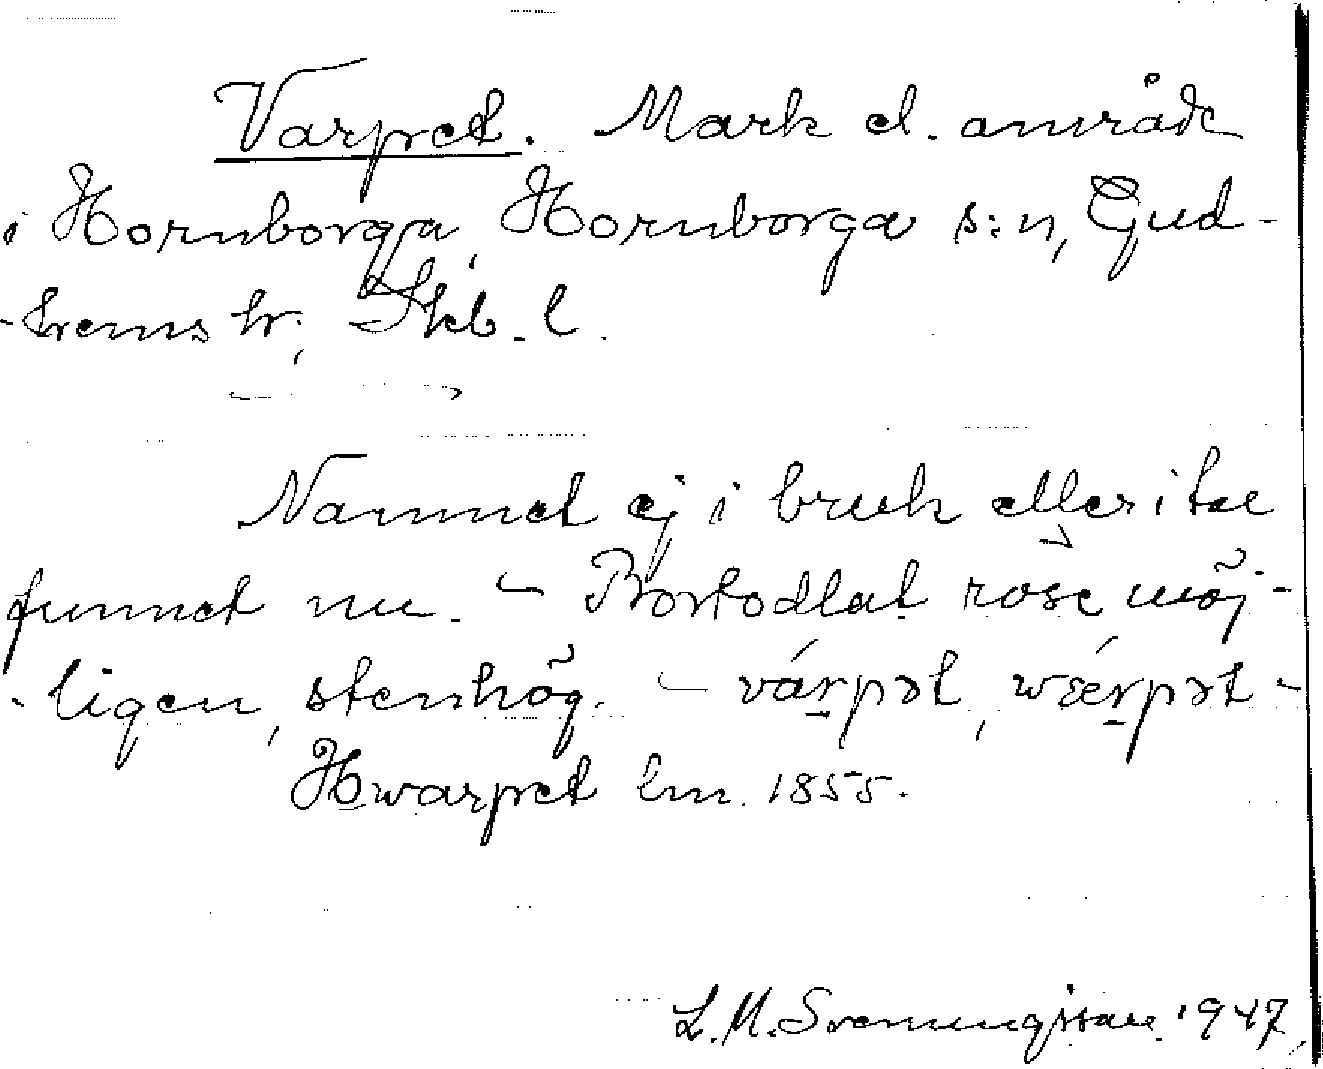 Varpet. Mark el. område
i Hornborga, Hornborga s:n, Gud-
-hems hr; Skb. l.
Namnet ej i bruk eller i tal
funnet nu. – Bortodlat röse, möj-
-ligen, stenhög. – várpət, wǽrpət -
Hwarpet lm. 1855.
L. M. Svenungsson 1947